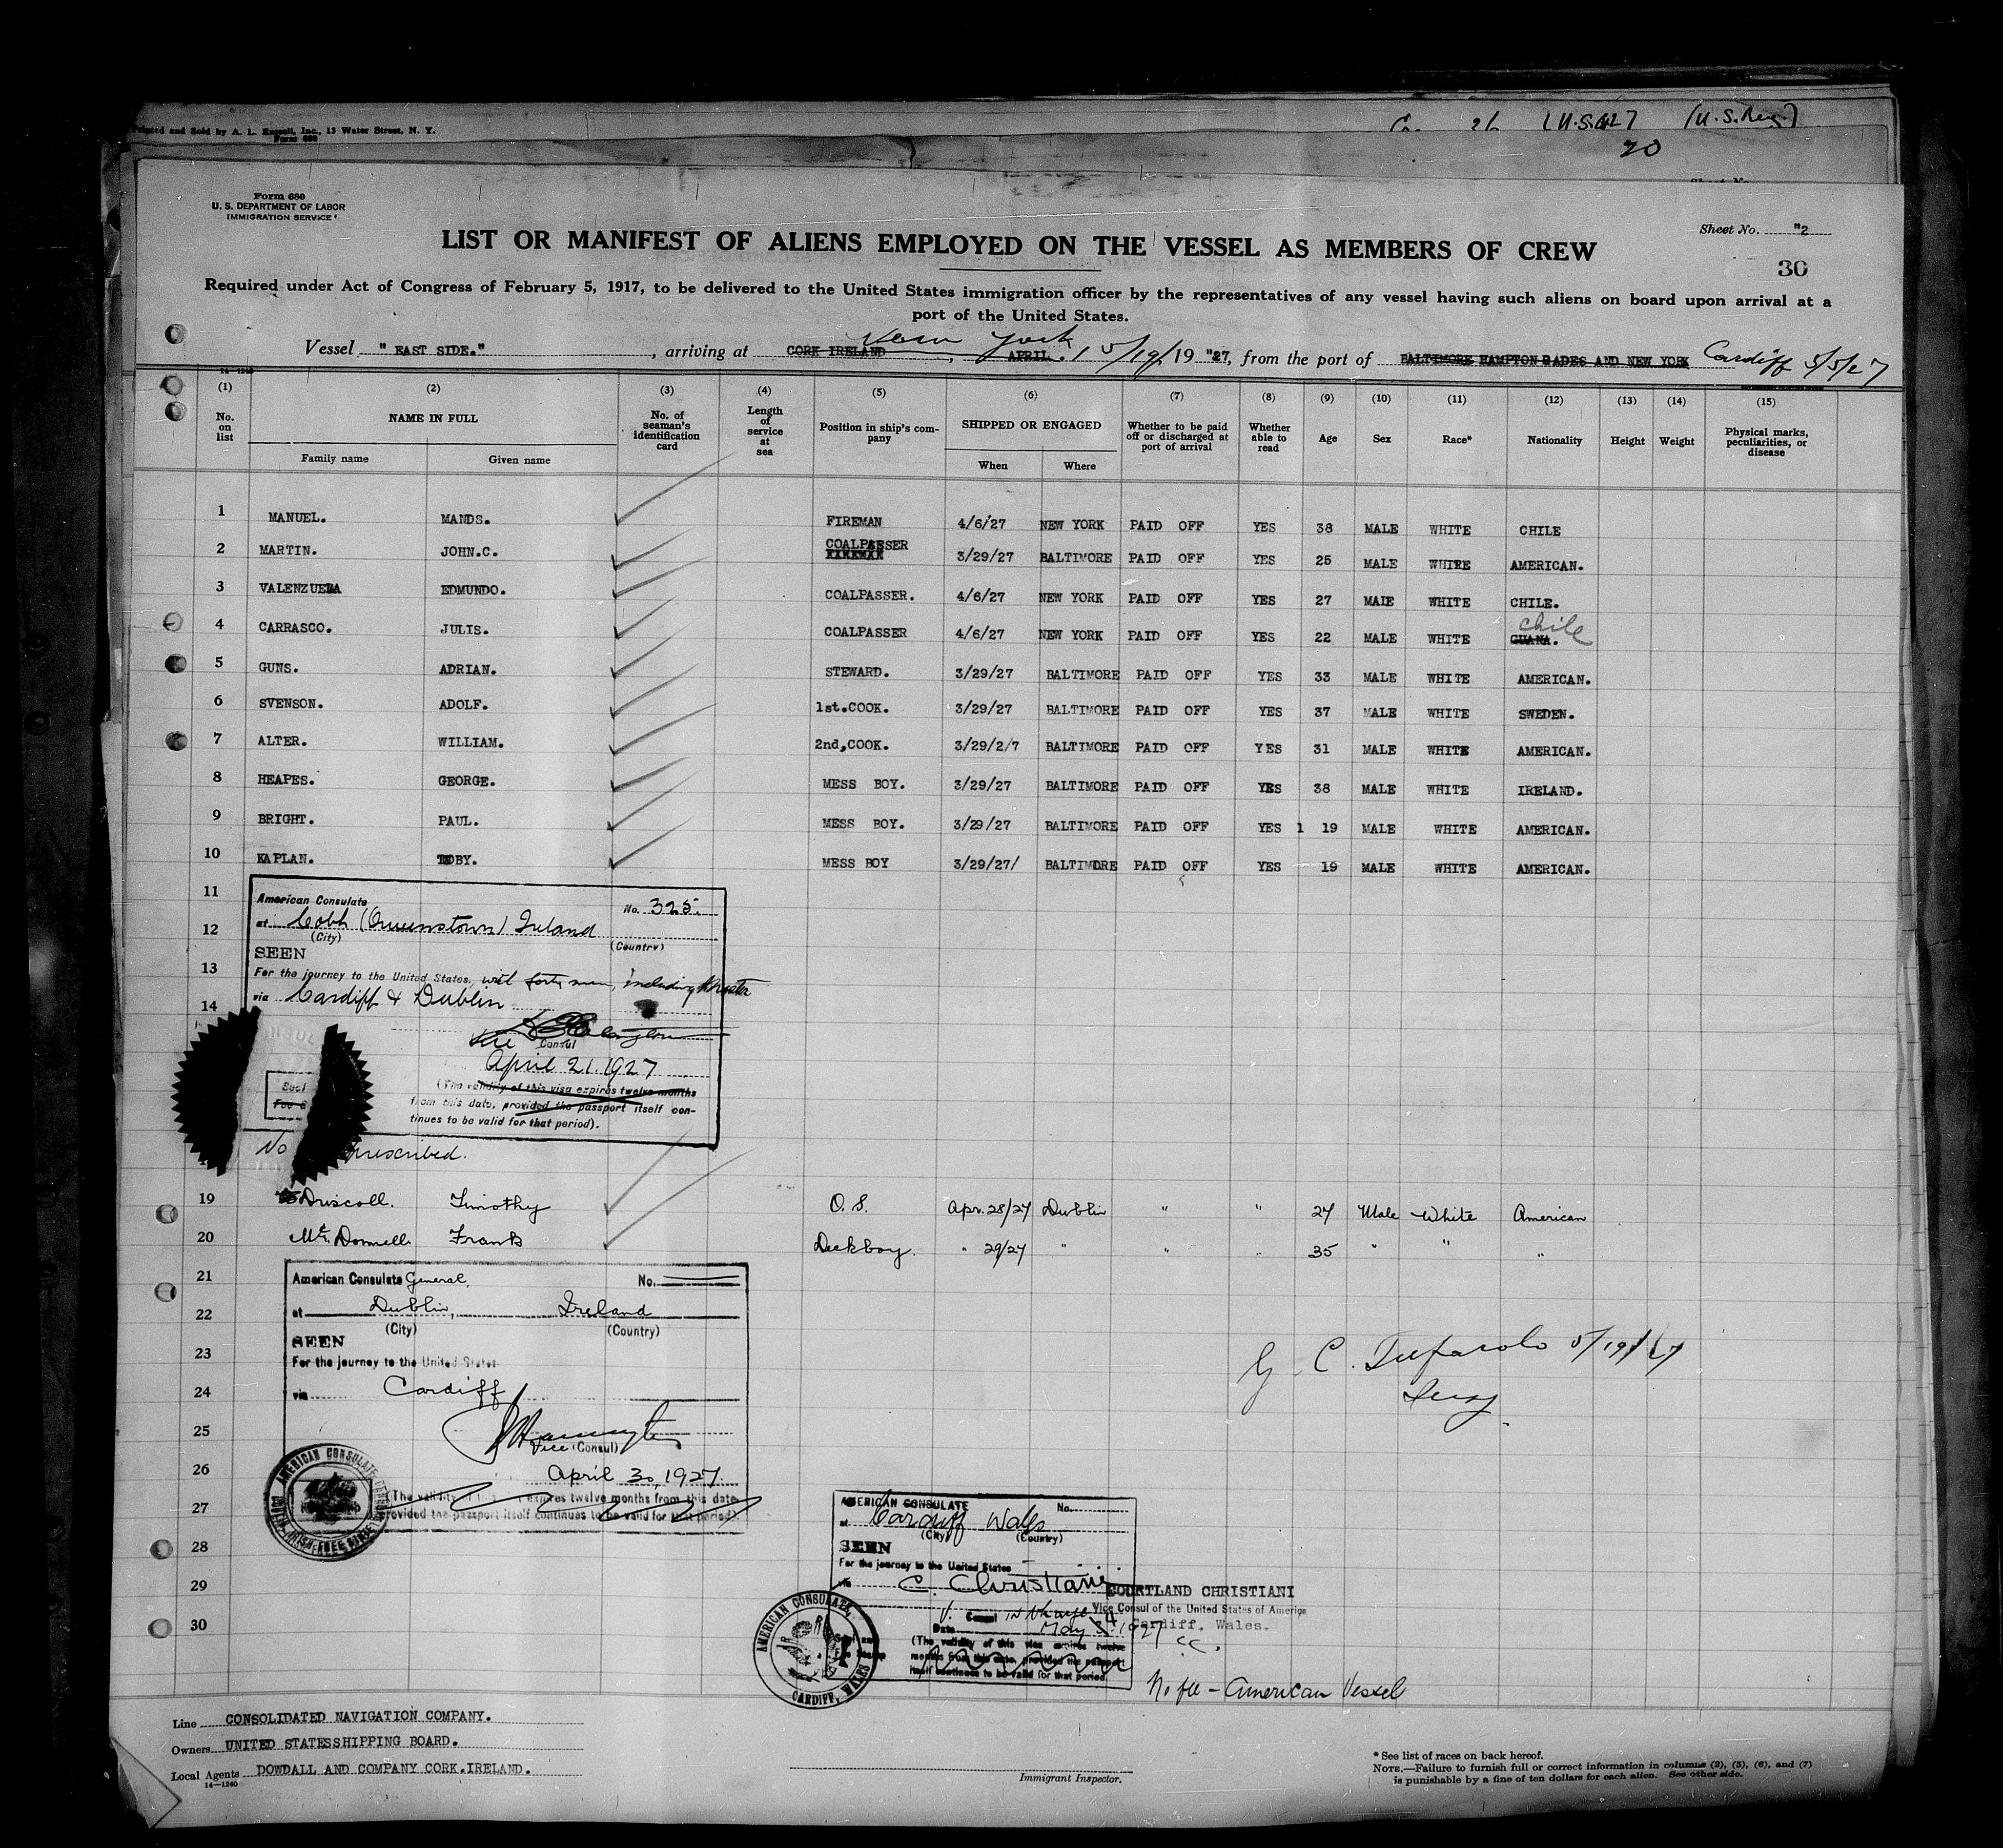 Printed and Sold by A. L. Russell, Inc., 13 Water Street, N. Y.
Form 680
(U. S. Reg.)
20
Form 680
U. S. DEPARTMENT OF LABOR
IMMIGRATION SERVICE
Sheet No. "2
LIST OR MANIFEST OF ALIENS EMPLOYED ON THE VESSEL AS MEMBERS OF CREW
30
Required under Act of Congress of February 5, 1917, to be delivered to the United States immigration officer by the representatives of any vessel having such aliens on board upon arrival at a
port of the United States.
Vessel " EAST SIDE." , arriving at CORK IRELAND New York , APRIL. 5/19/ 19 "27, from the port of BALTIMORE HAMPTON RADES AND NEW YORK Cardiff 5/5/27
14-1240
(1) (2) (3) (4) (5) (6) (7) (8) (9) (10) (11) (12) (13) (14) (15)
No. on list NAME IN FULL No. of seaman's identification card Length of service at sea Position in ship's company SHIPPED OR ENGAGED Whether to be paid off or discharged at port of arrival Whether able to read Age Sex Race* Nationality Height Weight Physical marks, peculiarities, or disease
Family name Given name When Where
1 MANUEL. MANDS. FIREMAN 4/6/27 NEW YORK PAID OFF YES 38 MALE WHITE CHILE
2 MARTIN. JOHN.C. COALPASSER FIREMAN 3/29/27 BALTIMORE PAID OFF YES 25 MALE WHITE AMERICAN.
3 VALENZUELA EDMUNDO. COALPASSER. 4/6/27 NEW YORK PAID OFF YES 27 MALE WHITE CHILE.
4 CARRASCO. JULIS. COALPASSER 4/6/27 NEW YORK PAID OFF YES 22 MALE WHITE GUANA. Chile
5 GUNS. ADRIAN. STEWARD. 3/29/27 BALTIMORE PAID OFF YES 33 MALE WHITE AMERICAN.
6 SVENSON. ADOLF. 1st.COOK. 3/29/27 BALTIMORE PAID OFF YES 37 MALE WHITE SWEDEN.
7 ALTER. WILLIAM. 2nd,COOK. 3/29/2/7 BALTIMORE PAID OFF YES 31 MALE WHITE AMERICAN.
8 HEAPES. GEORGE. MESS BOY. 3/29/27 BALTIMORE PAID OFF YES 38 MALE WHITE IRELAND.
9 BRIGHT. PAUL. MESS BOY. 3/29/27 BALTIMORE PAID OFF YES 1 19 MALE WHITE AMERICAN.
10 KAPLAN. TOBY. MESS BOY 3/29/27/ BALTIMORE PAID OFF YES 19 MALE WHITE AMERICAN.
11
American Consulate No. 325.
12
at Cobh (Queenstown) Ireland
(City) (Country)
SEEN
13
For the journey to the United States, with forty men, including Master
14
via Cardiff & Dublin
Vice Consul
April 21. 1927
(The validity of this visa expires twelve months
from this date, provided the passport itself con-
tinues to be valid for that period).
Seal
No prescribed.
19 Driscoll. Timothy O. S. Apr. 28/27 Dublin " " 27 Male White American
20 Mc. Donnell. Frank Deckboy. " 29/27 " " " 35 " " "
21
American Consulate General, No.
22
at Dublin, Ireland
(City) (Country)
SEEN
23
For the journey to the United States
24
via Cardiff
G. C. 5/19/27
25
Vice (Consul)
26
April 30, 1927.
27
(The validity of this expires twelve months from this date,
provided the passport itself continues to be valid for that period).
AMERICAN CONSULATE GENERAL DUBLIN, IRISH FREE STATE
AMERICAN CONSULATE No.
at Cardiff Wales
(City) (Country)
28
SEEN
For the journey to the United States
29
via C. Christiani COURTLAND CHRISTIANI
V. Consul in charge Vice Consul of the United States of America
30
Date May 4 1927 Cardiff, Wales.
CC.
(The validity of this visa expires twelve
months from this date, provided the passport
itself continues to be valid for that period.
AMERICAN CONSULATE, CARDIFF, WALES
No fee - American Vessel
Line CONSOLIDATED NAVIGATION COMPANY.
Owners UNITED STATESSHIPPING BOARD.
Local Agents DOWDALL AND COMPANY CORK.IRELAND.
14-1240
Immigrant Inspector.
* See list of races on back hereof.
NOTE.—Failure to furnish full or correct information in columns (2), (5), (6), and (7)
is punishable by a fine of ten dollars for each alien. See other side.